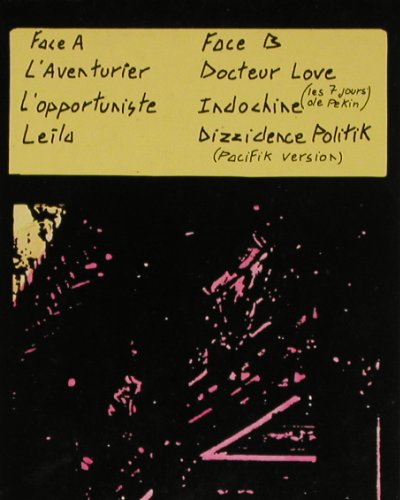 Face A
L'Aventurier
L'opportuniste
Leila
Face B
Docteur Love
Indochine (les 7 jours de Pekin)
Dizzidence Politik
(Pacifik version)